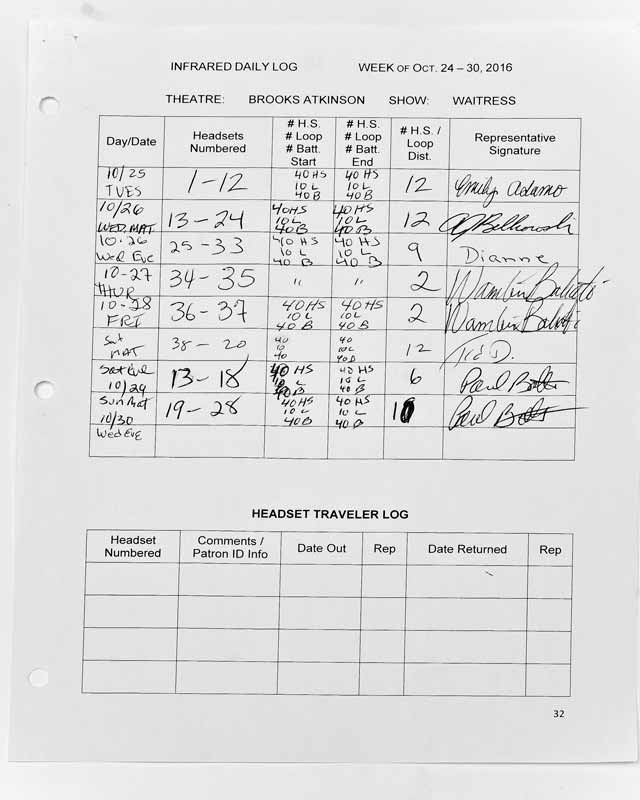 INFRARED DAILY LOG WEEK OF OCT. 24 – 30, 2016
THEATRE: BROOKS ATKINSON SHOW: WAITRESS
Day/Date Headsets Numbered # H.S. # Loop # Batt. Start # H.S. # Loop # Batt. End # H.S. / Loop Dist. Representative Signature
10/25 TUES 1-12 40HS 10 L 40 B 40 HS 10 L 40 B 12 Emily Adamo
10/26 WED. MAT 13-24 40HS 10L 40B 40 HS 10 L 40 B 12
10-26 Wed Eve 25-33 40 HS 10 L 40 B 40 HS 10 L 40 B 9 Dianne
10-27 THUR 34-35 " " 2
10-28 FRI 36-37 40HS 10L 40B 40HS 10L 40B 2
Sat MAT 38-20 40 10 40 40 10L 40B 12 Ted D.
Sat Eve 10/29 13-18 40 HS 10 L 40B 40 HS 10 L 40 B 6 Paul
Sun Mat 10/30 19-28 40HS 10 L 40B 40 HS 10 L 40 B 10 Paul
Wed Eve
HEADSET TRAVELER LOG
Headset Numbered Comments / Patron ID Info Date Out Rep Date Returned Rep
32